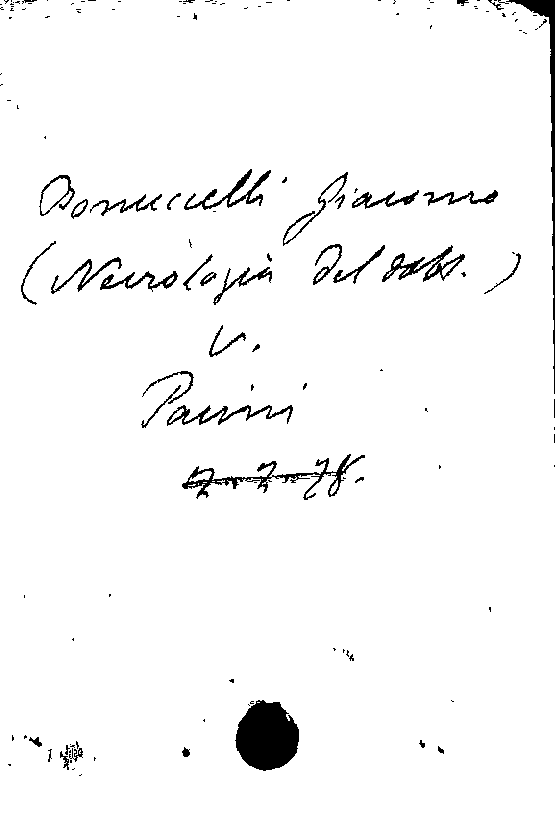 Bonuccelli Giacomo
(Necrologia del dott.)
v.
Pacini
7.2.78.